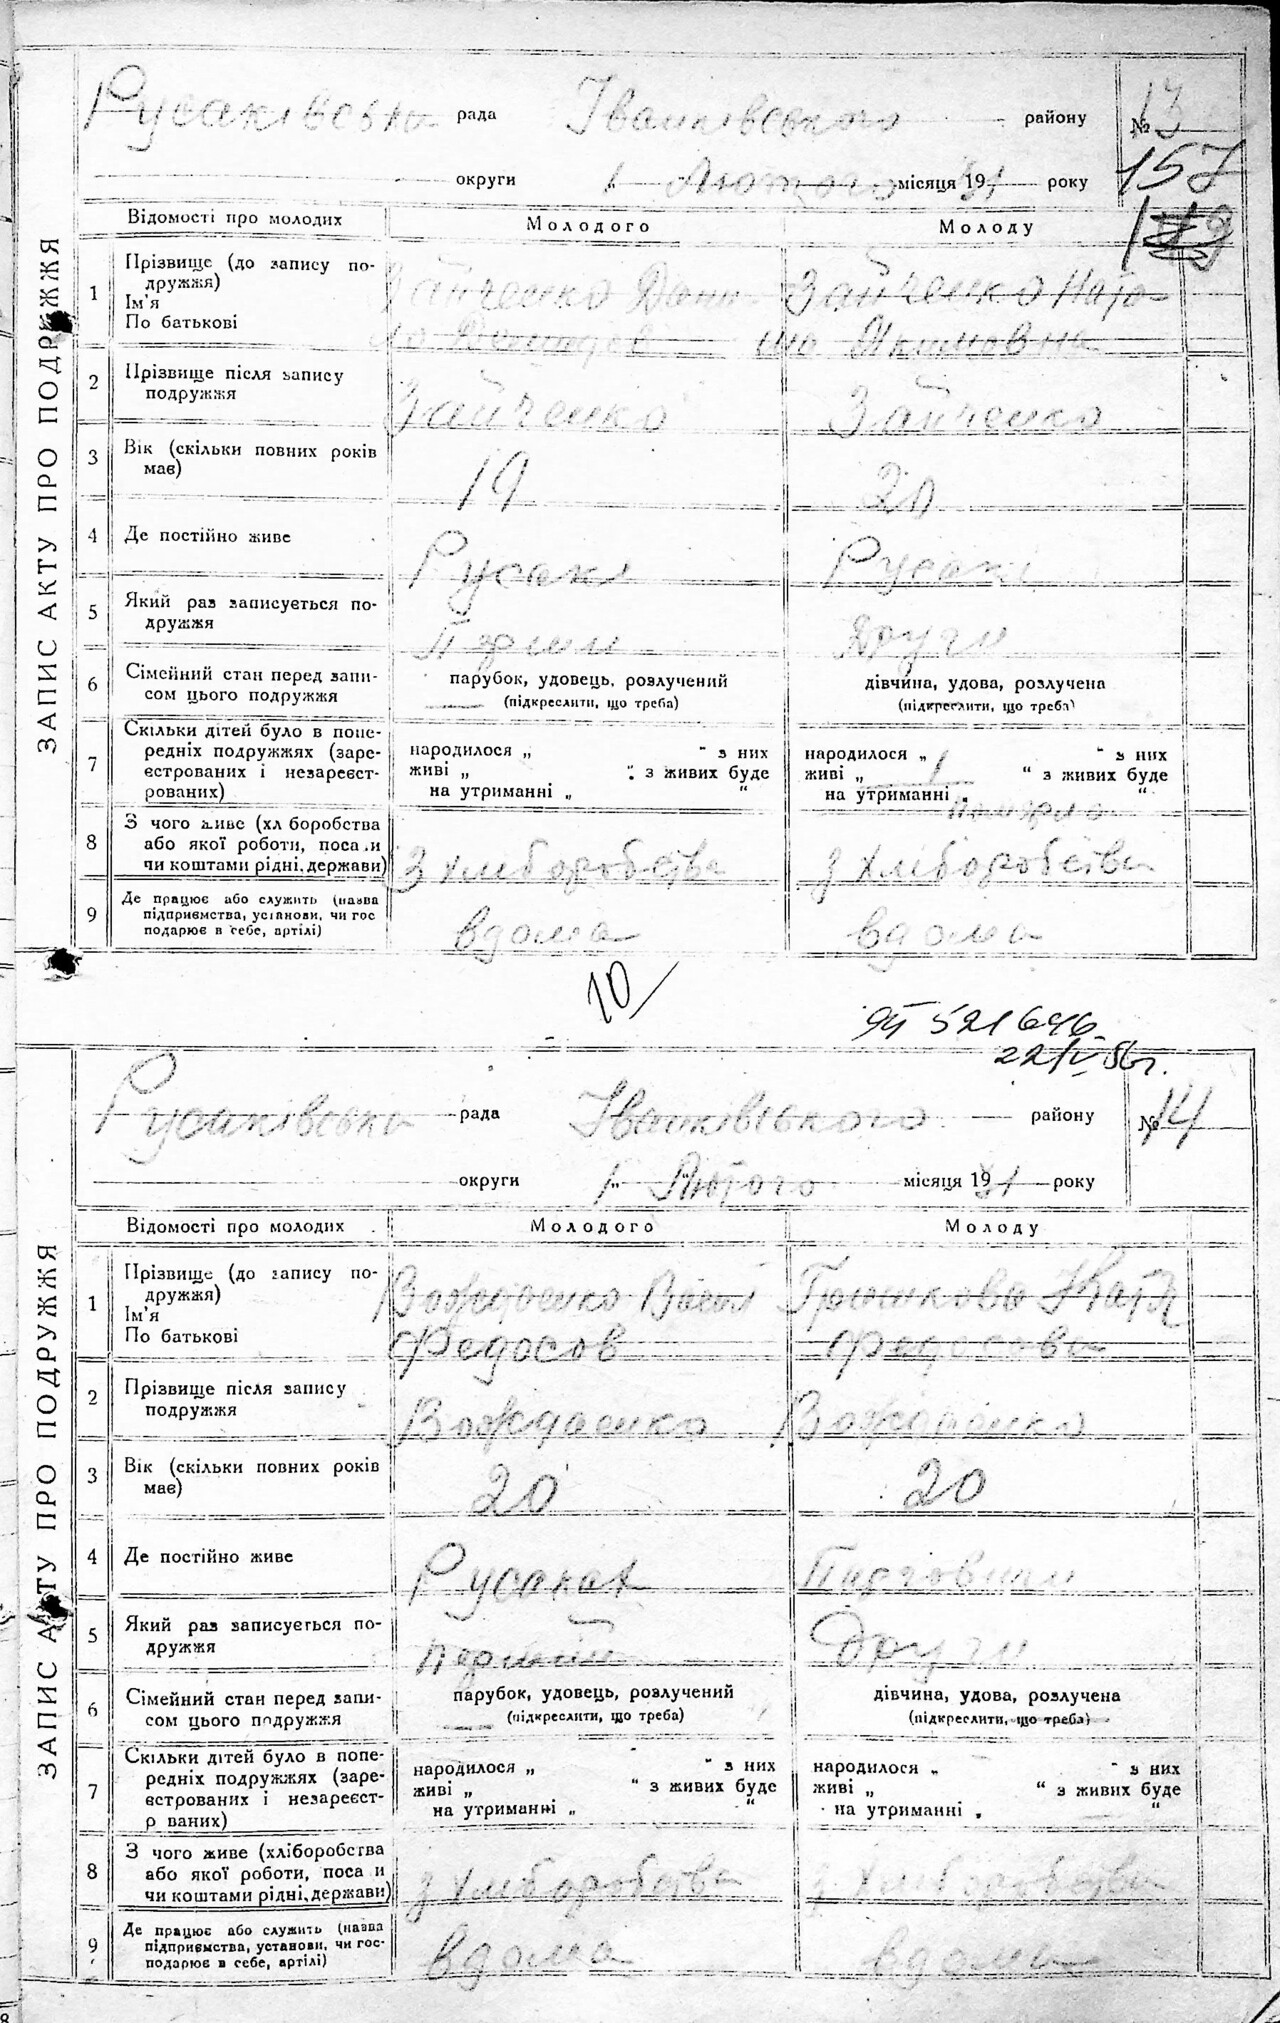 Русаківська рада Іванківського району № 13
округи 1 Лютого місяця 1931 року 157
Відомості про молодих Молодого Молоду
ЗАПИС АКТУ ПРО ПОДРУЖЖЯ
1 Прізвище (до запису по-
дружжя)
Ім'я
По батькові
Зайченко Дани- Зайченко Ната-
ло шо Якимовна
2 Прізвище після запису
подружжя
Зайченко Зайченко
3 Вік (скільки повних років
має)
19 20
4 Де постійно живе Русакі Русакі
5 Який раз записується по-
дружжя
Други
6 Сімейний стан перед запи-
сом цього подружжя
парубок, удовець, розлучений дівчина, удова, розлучена
(підкреслити, що треба) (підкреслити, що треба)
7 Скільки дітей було в попе-
редніх подружжях (заре-
єстрованих і незареєст-
рованих)
народилося „ " з них народилося „ " з них
живі „ " з живих буде живі „ 1 " з живих буде
на утриманні „ " на утриманні „ "
померло
8 З чого живе (хліборобства
або якої роботи, посади
чи коштами рідні, держави)
З хліборобства З хліборобства
9 Де працює або служить (назва
підприємства, установи, чи гос
подарює в себе, артілі)
вдома вдома
10
521646
22/V 56 г.
Русаківська рада Іванківського району № 14
округи 1 Лютого місяця 1931 року
Відомості про молодих Молодого Молоду
ЗАПИС АКТУ ПРО ПОДРУЖЖЯ
1 Прізвище (до запису по-
дружжя)
Ім'я
По батькові
Вождаенко Васил
Федосов Федосовна
2 Прізвище після запису
подружжя
Вождаенко Вождаенко
3 Вік (скільки повних років
має)
20 20
4 Де постійно живе Русаках
5 Який раз записується по-
дружжя
перший Други
6 Сімейний стан перед запи-
сом цього подружжя
парубок, удовець, розлучений дівчина, удова, розлучена
(підкреслити, що треба) (підкреслити, що треба)
7 Скільки дітей було в попе-
редніх подружжях (заре-
єстрованих і незареєст-
р ваних)
народилося „ " з них народилося „ " з них
живі „ " з живих буде живі „ " з живих буде
на утриманні „ " на утриманні „ "
8 З чого живе (хліборобства
або якої роботи, поса и
чи коштами рідні, держави)
з хліборобства з хліборобства
9 Де працює або служить (назва
підприємства, установи, чи гос-
подарює в себе, артілі)
вдома вдома